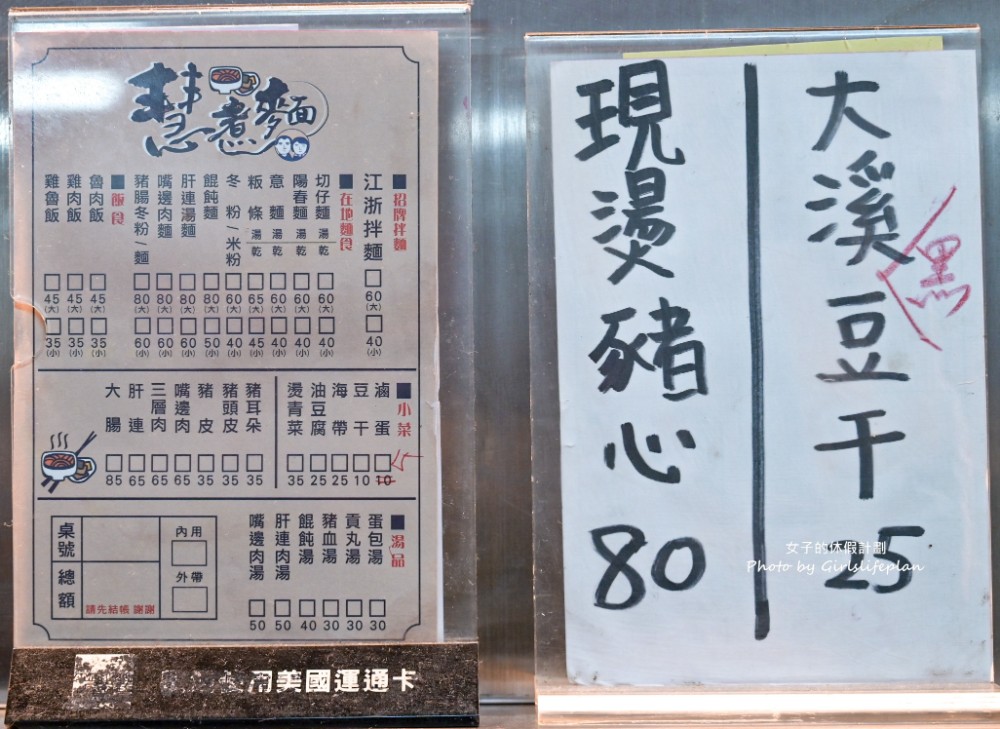 慧煮麵
■招牌拌麵
江浙拌麵 60(大) 40(小)
■在地麵食
切仔麵 湯 乾 60 40
陽春麵 湯 乾 60 40
意麵 湯 乾 60 40
粄條 湯 乾 65 45
冬粉/米粉 60 40
餛飩麵 80 50
肝連湯麵 80(大) 60(小)
嘴邊肉麵 80(大) 60(小)
豬腸冬粉/麵 80(大) 60(小)
■飯食
魯肉飯 45(大) 35(小)
雞肉飯 45(大) 35(小)
雞魯飯 45(大) 35(小)
■小菜
滷蛋 10 15
豆干 10
海帶 25
油豆腐 25
燙青菜 35
豬耳朵 35
豬頭皮 35
豬皮 35
嘴邊肉 65
三層肉 65
肝連 65
大腸 85
■湯品
蛋包湯 30
貢丸湯 30
豬血湯 30
餛飩湯 40
肝連肉湯 50
嘴邊肉湯 50
內用
外帶
桌號
總額
請先結帳 謝謝
用美國運通卡
大溪豆干 25
黑
現燙豬心 80
女子的休假計劃
Photo by Girlslifeplan